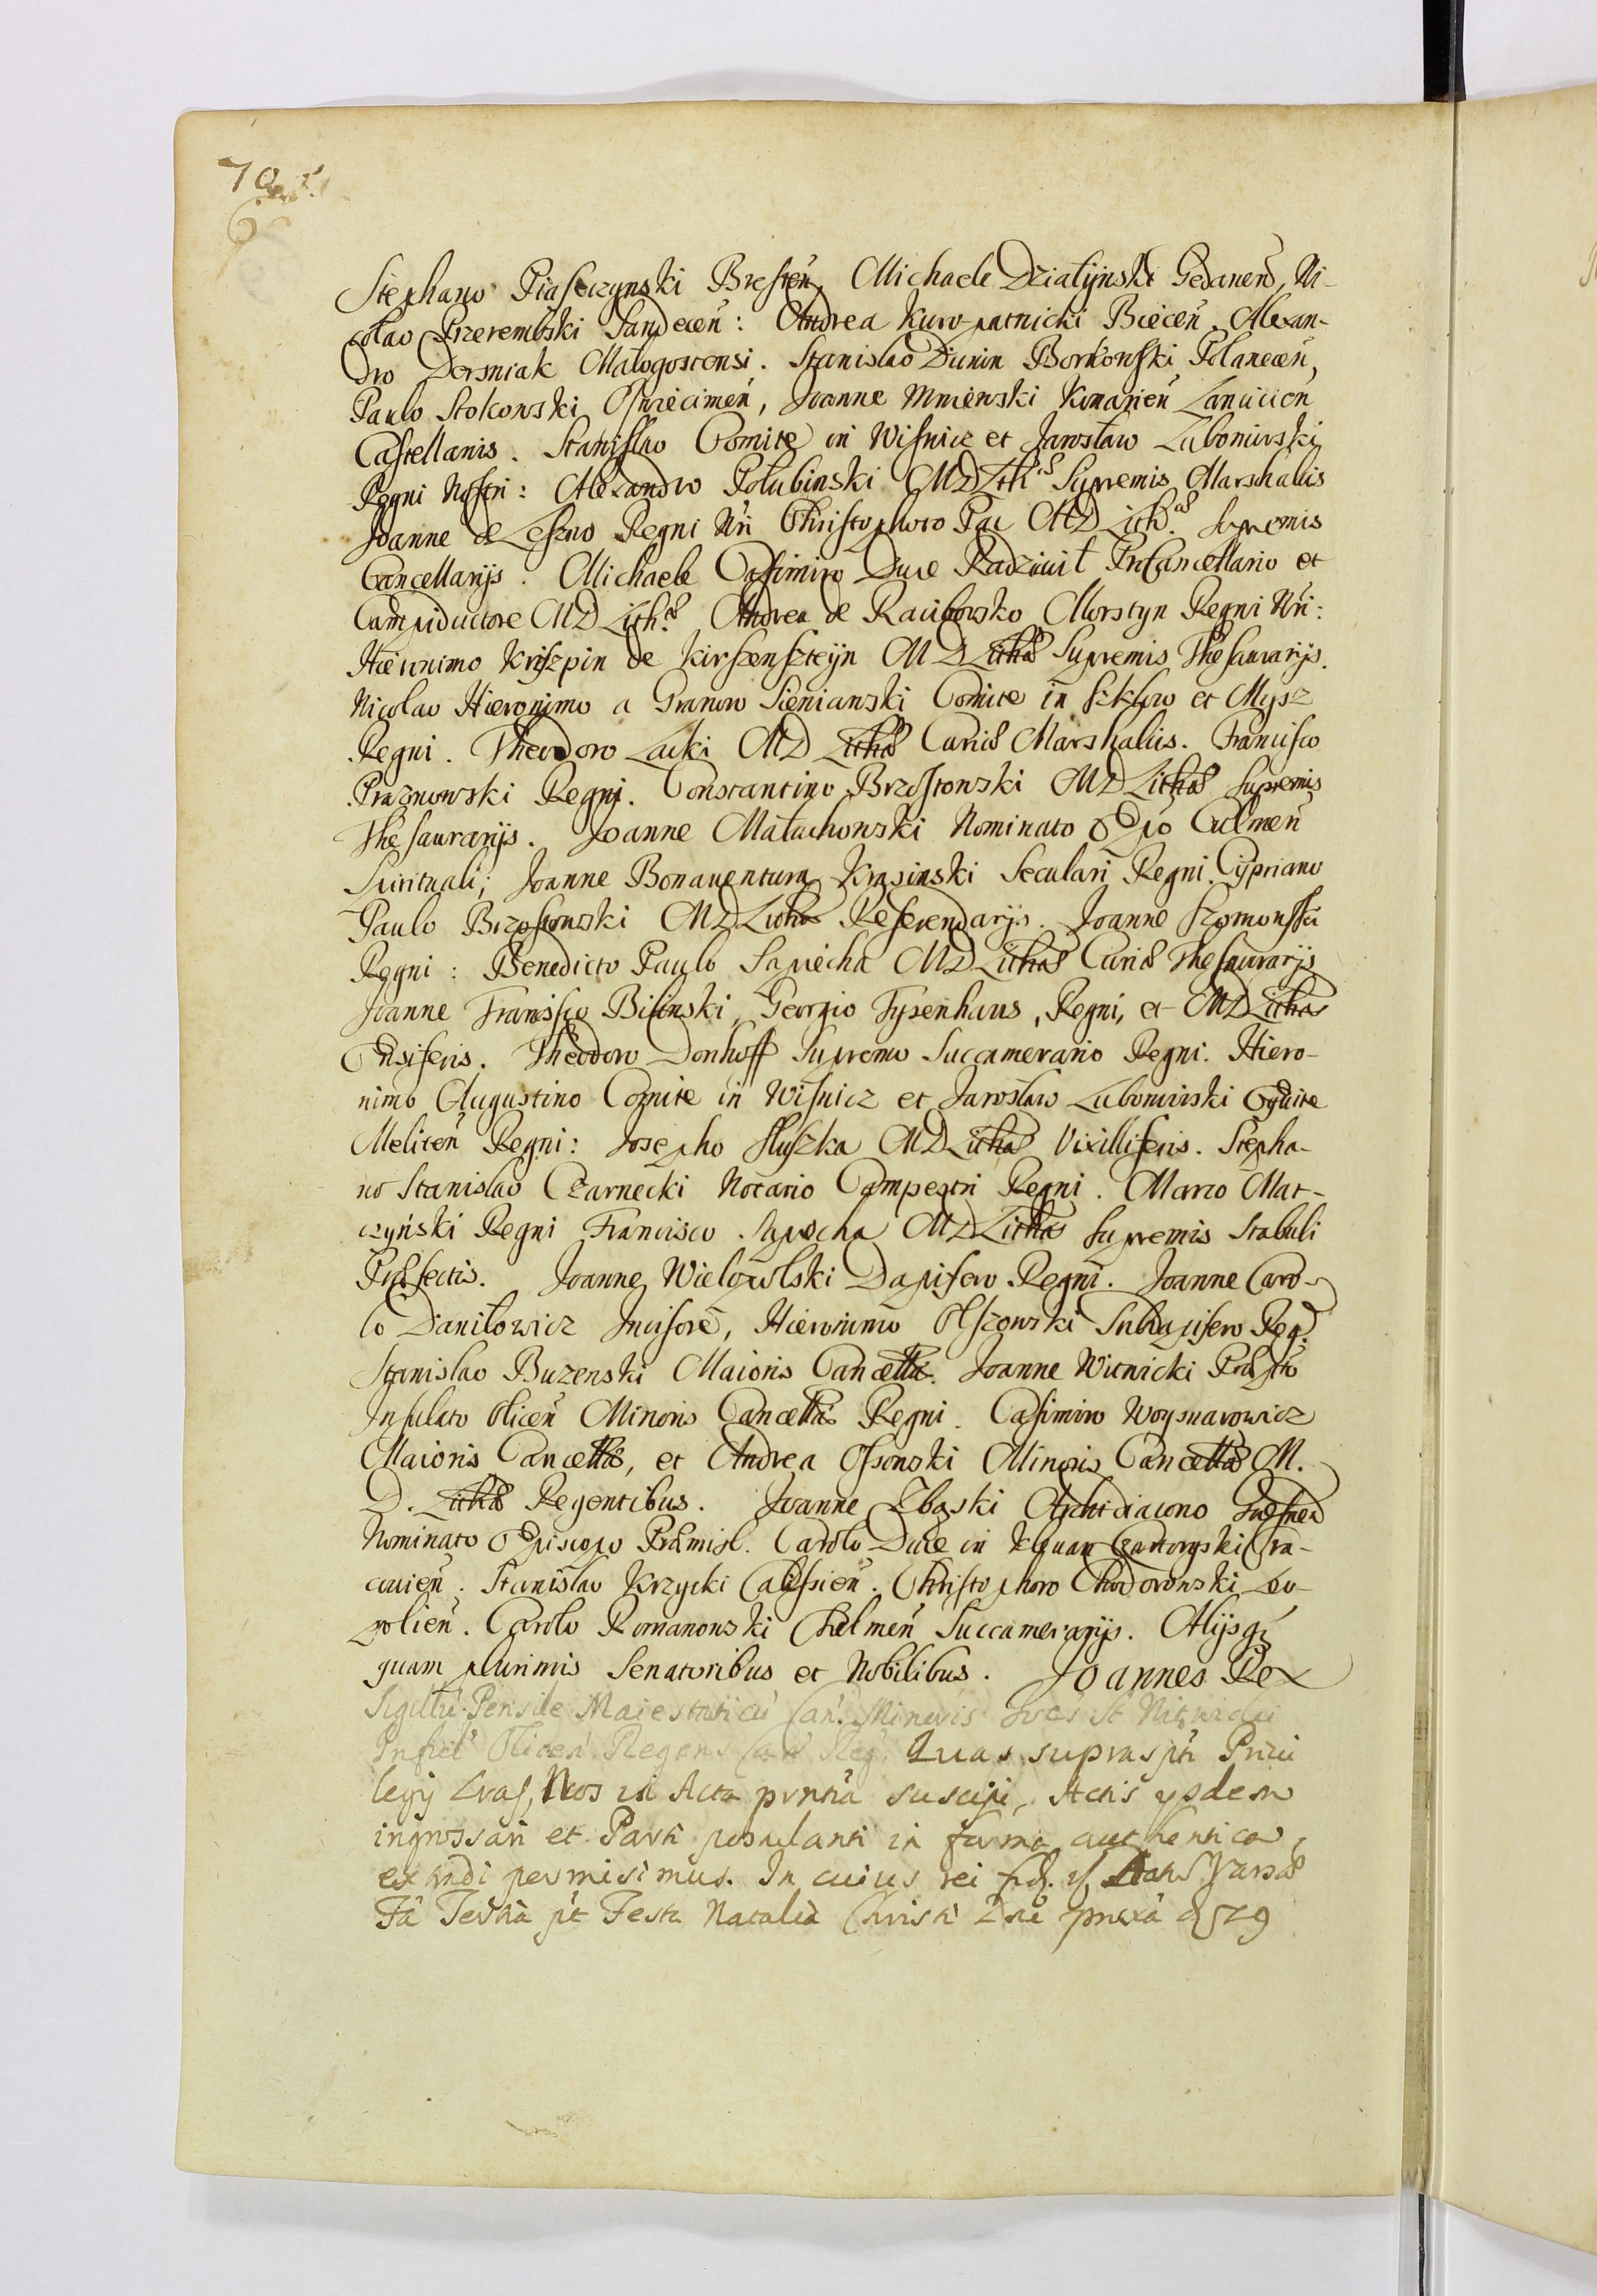 70
Stephano Piaseczynski Bresten, Michaele Działyński Gedanen, Ni-
colao Przerembski Sandecen: Andrea Kuropatnicki Biecen. Alexan-
dro Dersniak Małogostensi. Stanislao Dunin Borkowski Polanecen,
Paulo Stokowski Osviecimen, Joanne Mniewski Konarien Lancicien
Castellanis. Stanislao Comite in Wisnicz et Jarosław Lubomirski
Regni Nostri: Alexandro Połubinski MD Lithˢ Supremis Marschalcis
Joanne de Leszno Regni Nri Christophoro Pac MD Lith. Supremis
Cancellarijs. Michaele Casimiro Duce Radziwił ProCancellario et
Campiductore MD Lith. Andrea de Raciborsko Morstyn Regni Nri:
Hieronimo Kriszpin de Kirszenszteyn MD Lithæ Supremis Thesaurarijs.
Nicolao Hieronimo a Granow Sieniawski Comite in Szkłow et Mysz
Regni. Theodoro Lacki MD Lithæ Curiæ Marshalcis. Francisco
Prazmowski Regni. Constantino Brzostowski MD Lithæ Supremis
Thesaurarijs. Joanne Małachowski Nominato Eppo Culmen
Spirituali; Joanne Bonaventura Krasinski Seculari Regni. Cypriano
Paulo Brzostowski MD Lithæ Referendarijs. Joanne Szomowski
Regni: Benedicto Paulo Sapiecha MD Lithæ Curiæ Thesaurarijs
Joanne Francisco Bilinski, Georgio Tysenhaus, Regni, et MD Lithæ
Ensiferis. Theodoro Donhoff Supremo Succamerario Regni. Hiero-
nimo Augustino Comite in Wisnicz et Jarosław Lubomirski Equite
Meliten Regni: Josepho Sluszka MD Lithæ Vixilliferis. Stepha-
no Stanislao Czarnecki Notario Campestri Regni. Marco Mat-
czyński Regni Francisco Sapiecha MD Lithæ Supremis Stabuli
Præfectis. Joanne Wielopolski Dapifero Regni. Joanne Caro-
lo Daniłowicz Incisore, Hieronimo Olszowski Subdapifero Reg.
Stanislao Buzenski Maioris Cancellæ. Joanne Witwicki Præpto
Infulato Olicen Minoris Cancellæ Regni. Casimiro Woysnarowicz
Maioris Cancellæ, et Andrea Ossowski Minoris Cancellæ M.
D. Lithæ Regentibus. Joanne Zbąski Archidiacono Gnesnen
Nominato Episcopo Præmisl. Carolo Duce in Klewan Czartoryski Cra-
covien. Stanislao Krzycki Calissien. Christophoro Chodorowski Leo-
polien. Carolo Romanowski Chelmen Succamerarijs. Alijsq
quam plurimis Senatoribus et Nobilibus. Joannes Rex
Sigillu Pensile Maiestaticu Can. Minoris Witwicki
Infuls Olicen Regens Can Reg. Quas supraspti Privi
legij Lras, Nos in Acta pnntia suscipi, Actis ysdem
ingrossari et Parti postulanti in forma authentica,
extradi permisimus. In cuius rei fid.
Fa Tertia pt Festa Natalia Christi Dni proxa